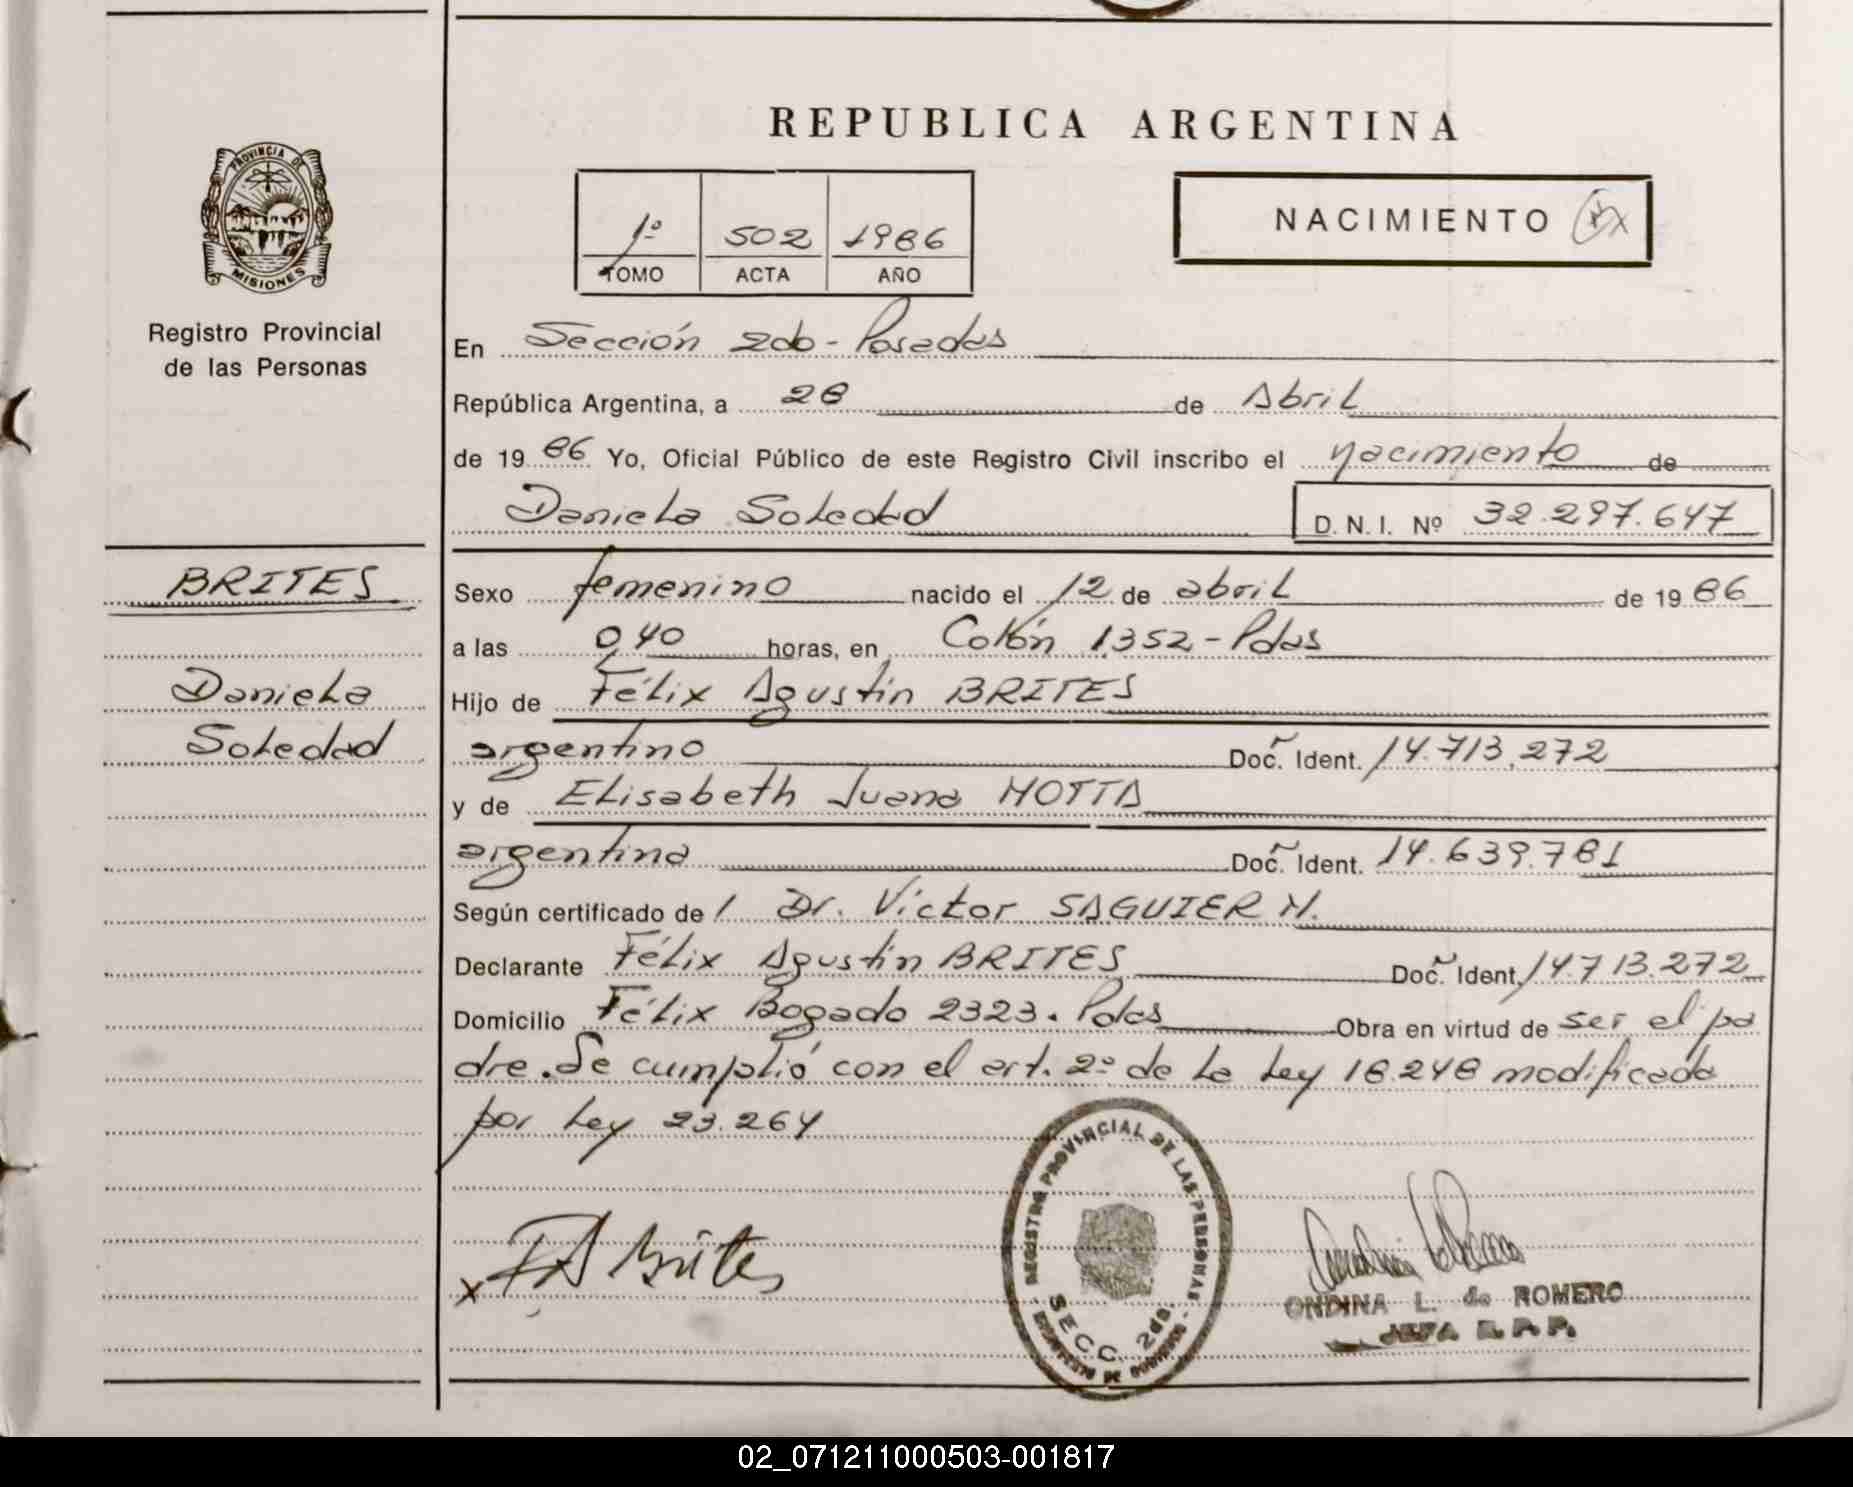 REPUBLICA ARGENTINA
PROVINCIA DE
MISIONES
Registro Provincial
de las Personas
1º 502 1986
TOMO ACTA AÑO
NACIMIENTO
En Sección 2da - Posadas
República Argentina, a 28 de Abril
de 1986 Yo, Oficial Público de este Registro Civil inscribo el nacimiento de
Daniela Soledad D.N.I. Nº 32.297.647
BRITES
Daniela
Soledad
Sexo femenino nacido el 12 de abril de 1986
a las 0,40 horas, en Colón 1352 - Pdas
Hijo de Félix Agustín BRITES
argentino Doc. Ident. 14.713.272
y de Elisabeth Juana MOTTA
argentina Doc. Ident. 14.639.781
Según certificado de / Dr. Víctor SAGUIER M.
Declarante Félix Agustín BRITES Doc. Ident. 14.713.272
Domicilio Félix Bogado 2323. Pdas Obra en virtud de ser el pa
dre. Se cumplió con el art. 2º de la Ley 18.248 modificada
por Ley 23.264
REGISTRO PROVINCIAL DE LAS PERSONAS
SECC. 2da
x FA Brites
ONDINA L. de ROMERO
JEFA R.P.P.
02_071211000503-001817